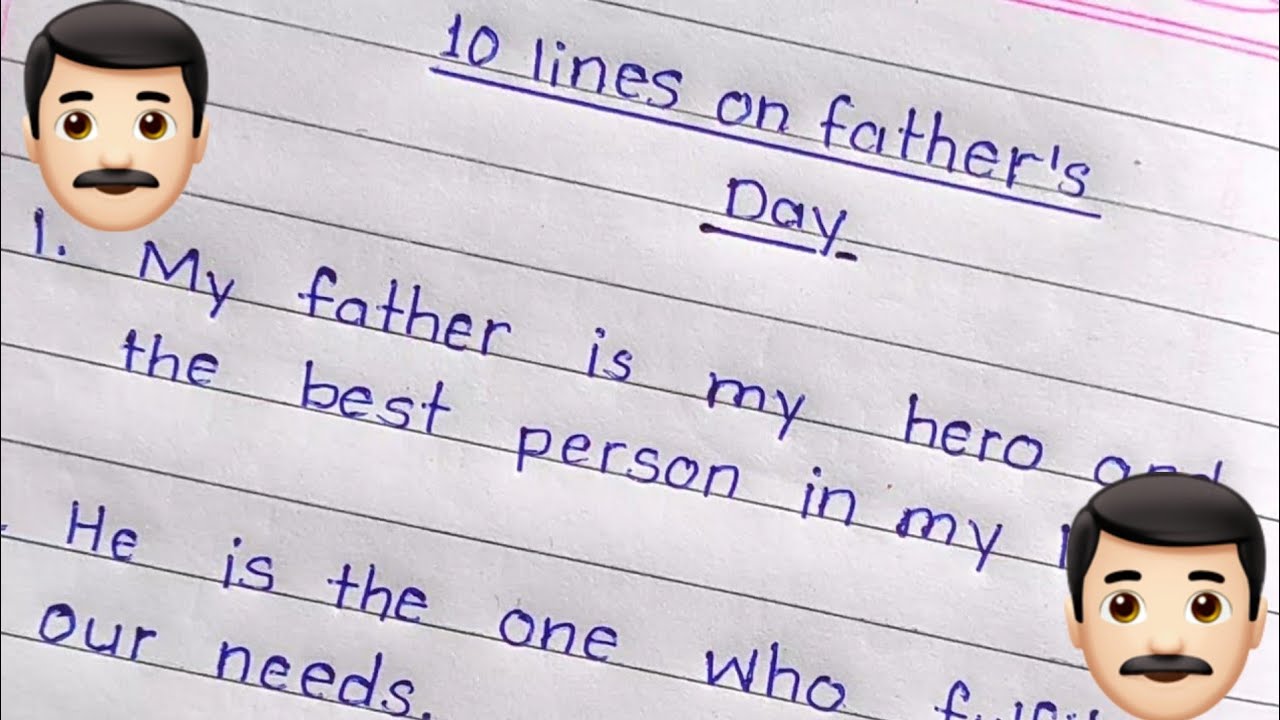 10 lines on father's
Day
1. My father is my hero and
the best person in my
He is the one who
our needs.